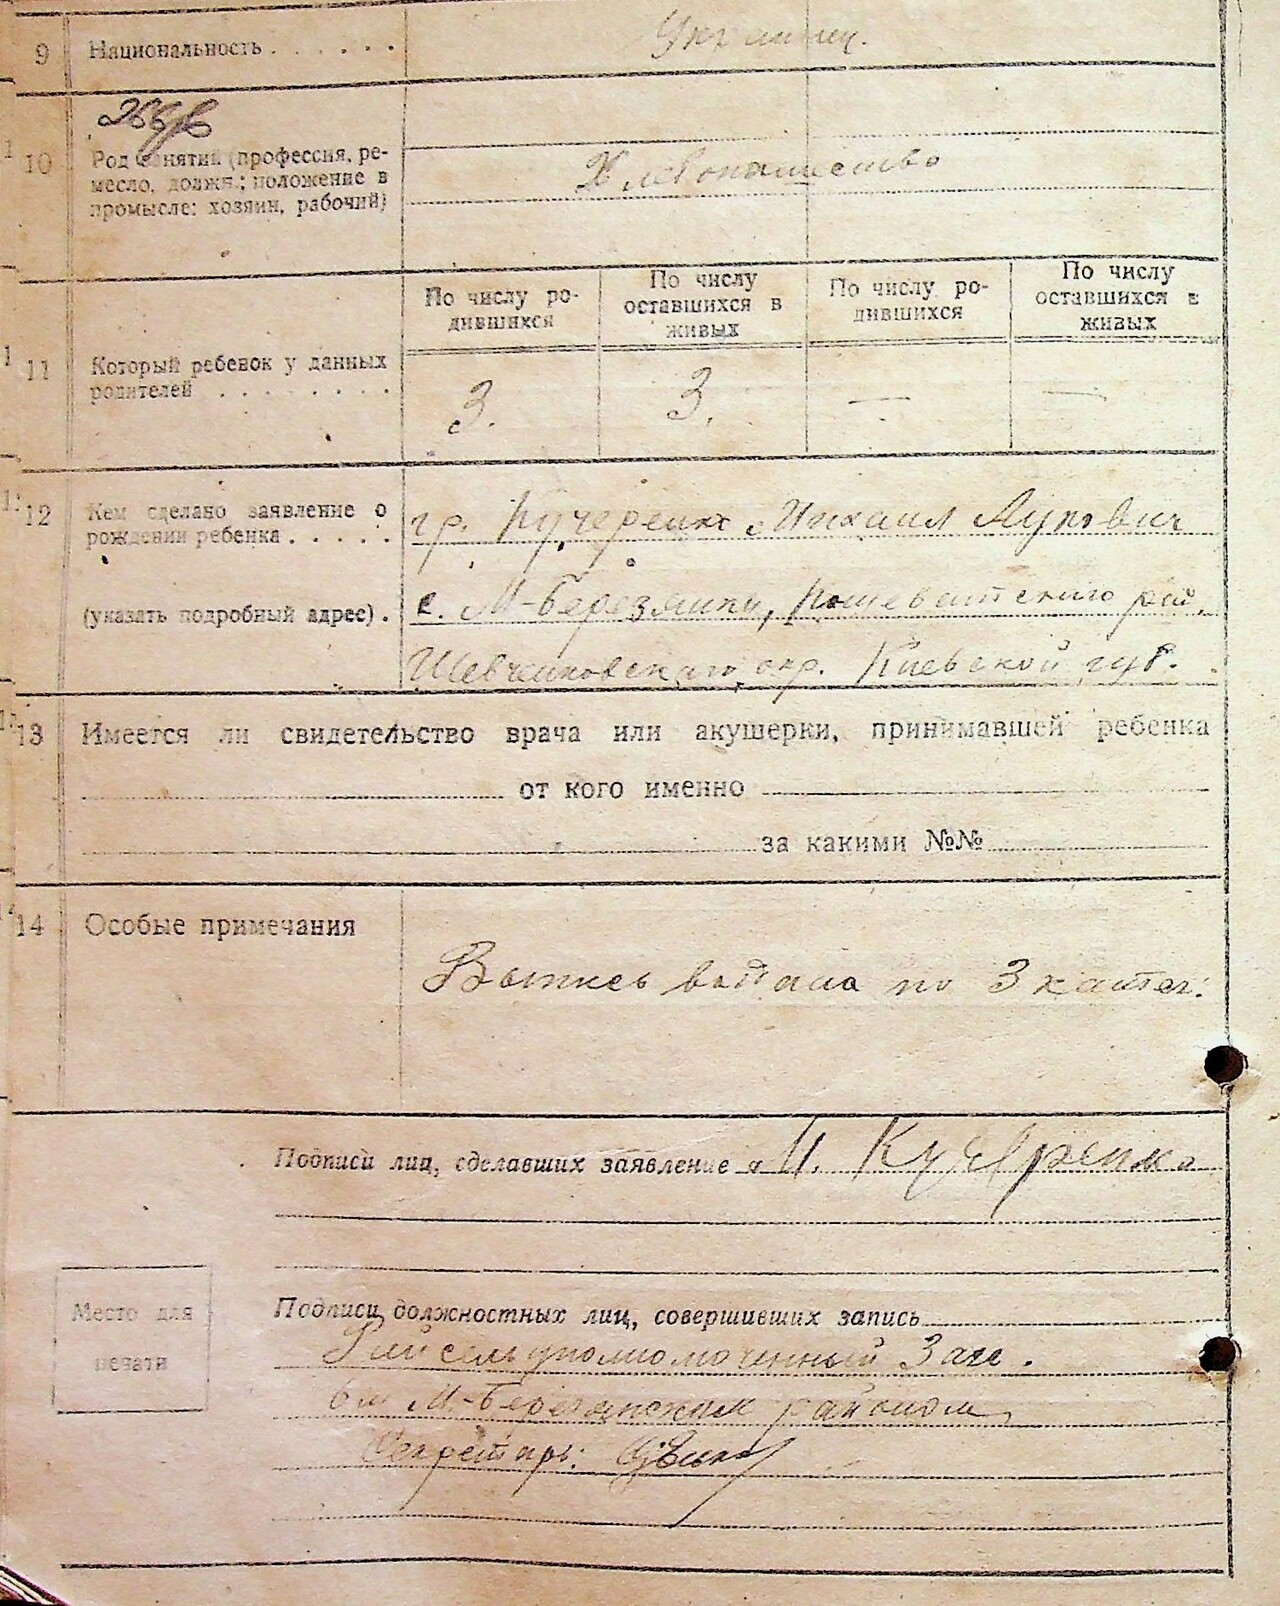 9 Национальность . . . . . . Украинец.
10 Род занятий (профессия, ре-
месло, должн.; положение в
промысле: хозяин, рабочий)
Хлебопашество
По числу ро-
дившихся
По числу
оставшихся в
живых
По числу ро-
дившихся
По числу
оставшихся в
живых
11 Который ребенок у данных
родителей . . . . . . . .
3. 3. — —
12 Кем сделано заявление о
рождении ребенка . . . . .
(указать подробный адрес) .
гр. Кучеренко Михаил Лукович
с. М-Березянки, рай.
Шевченковского окр. Киевской губ.
13 Имеется ли свидетельство врача или акушерки, принимавшей ребенка
от кого именно
за какими №№
14 Особые примечания
Выпись выдана по 3 катег.
Подписи лиц, сделавших заявление М. Кучеренко
Место для
печати
Подписи должностных лиц, совершивших запись
уполномоченный Загс.
М-Березянским районом
Секретарь: